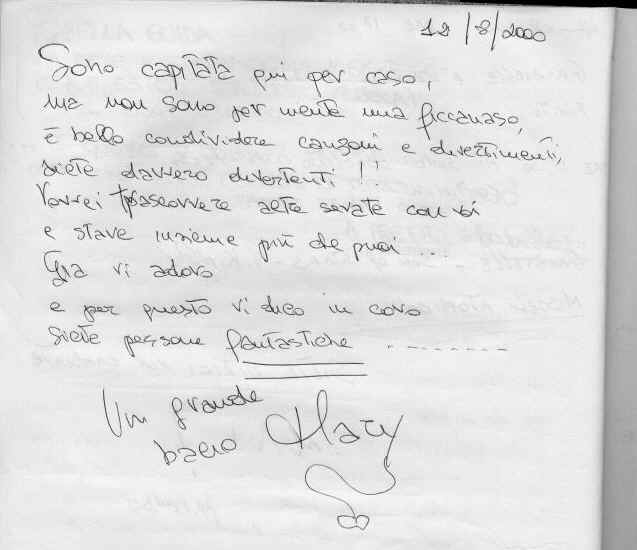 12/8/2000
Sono capitata qui per caso,
ma non sono per niente una ficcanaso,
è bello condividere canzoni e divertimenti,
siete davvero divertenti!!
Vorrei trascorrere altre serate con voi
e stare insieme più che puoi....
Già vi adoro
e per questo vi dico in coro
siete persone fantastiche ........
Un grande
bacio Mary